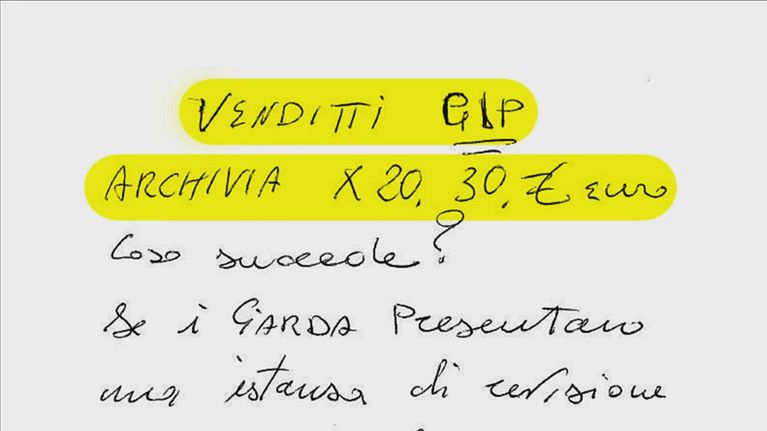 VENDITTI GIP
ARCHIVIA X 20. 30. € euro
Cosa succede?
Se i GARDA Presentano
una istanza di revisione